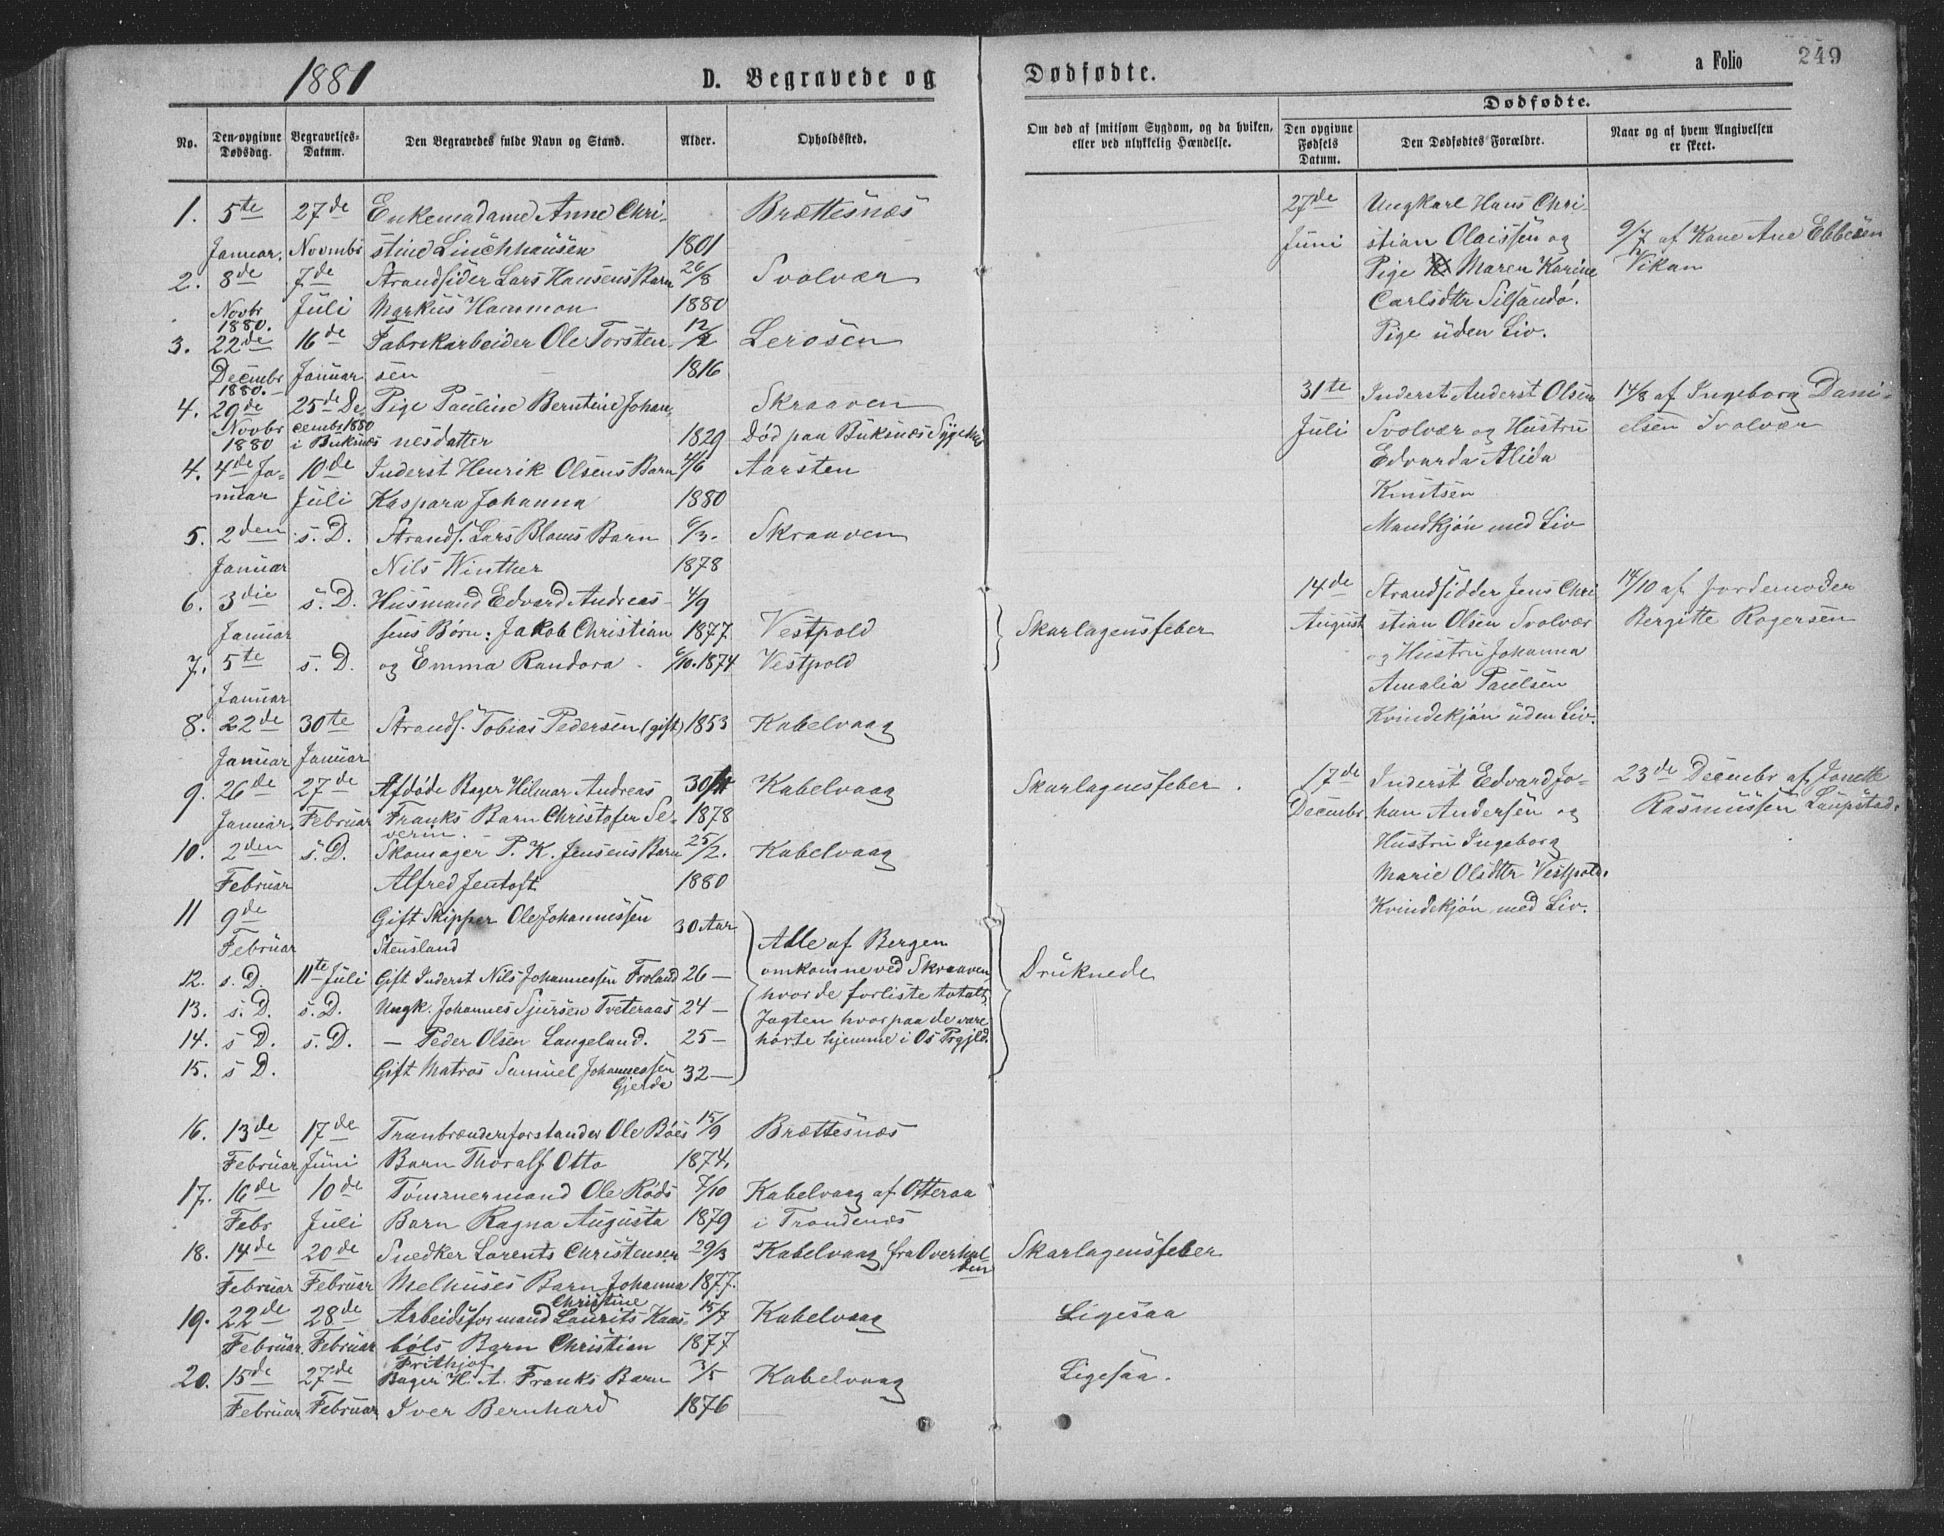 1881
D. Begravede og Dødfødte.
a Folio 249
No.
Den opgivne Dødsdag.
Begravelses-Datum.
Den Begravedes fulde Navn og Stand.
Alder.
Opholdssted.
Om død af smitsom Sygdom, og da hvilken, eller ved ulykkelig Hændelse.
Dødfødte.
Den opgivne Fødsels Datum.
Den Dødfødtes Forældre.
Naar og af hvem Angivelsen er skeet.
1. 5te 27de Enkemadame Anne Chri- Brættesnæs
Januar. Novmbr stine Linchhausen 1801
2. 8de 7de Strandsider Lars Hansens Barn 26/8 Svolvær
Novbr 1880. Juli Markus Hammon 1880
3. 22de 16de Fabrikarbeider Ole Torsten- 12/2 Lerosen
Decembr 1880. Januar sen 1816
4. 29de 25de De- Pige Pauline Berntine Johan- Skraaven
Novbr cembr 1880
1880 i Buksnæs nesdatter 1829 Død paa Buksnæs Sygehus
4. 4de Ja- 10de Inderst Henrik Olsens Barn 4/6 Aarsten
nuar Juli Kaspara Johanna 1880
5. 2den s. D. Strands. Lars Bloms Barn 6/3. Skraaven
Januar Nils Winther 1878
6. 3die s. D. Husmand Edvard Andreas- 4/9
Januar sens Børn: Jakob Christian 1877. Vestpold Skarlagensfeber
7. 5te s. D. og Emma Randora 6/10. 1874 Vestpold
Januar
8. 22de 30te Strands. Tobias Pedersen (gift) 1853 Kabelvaag
Januar Januar
9. 26de 27de Afdøde Bager Hilmar Andreas 30/11 Kabelvaag Skarlagensfeber.
Januar Februar Franks Barn Christofer Se- 1878
verin.
10. 2den s. D. Skomager P. K. Jensens Barn 25/2. Kabelvaag
Februar Alfred Jentoft 1880
11 9de Gift Skipper Ole Johannessen 30 Aar
Februar Stensland
12. s. D. 11te Juli Gift Inderst Nils Johannessen Froland 26 —
13. s. D. s. D. Ungk. Johannes Sjursen Tveteraas 24 —
14. s D. s. D. — Peder Olsen Langeland. 25 —
15. s D. Gift Matros Samuel Johannessen Gjerde 32 —
Alle af Bergen
omkomne ved Skraaven
hvor de forliste totalt,
Jagten hvorpaa de vare
hørte hjemme i Os Prgjld.
Druknede
16. 13de 17de Tranbrænderforstander Ole Böes 15/9 Brættesnæs
Februar Juni Barn Thoralf Otto 1874.
17. 16de 10de Tømmermand Ole Røds 7/10 Kabelvaag af Otteraa
Febr Juli Barn Ragna Augusta 1879 i Trondenæs
18. 14de 20de Snedker Lorents Christensen 29/3 Kabelvaag fra Overhal- Skarlagensfeber
den
Februar Februar Melhuses Barn Johanna 1877.
Christine
19. 22de 28de Arbeidsformand Laurits Kaas- 15/7 Kabelvaag Ligesaa
Februar. Februar bøls Barn Christian 1877
Frithjof
20. 15de 27de Bager H. A. Franks Barn 3/5 Kabelvaag Ligesaa.
Februar Februar Iver Bernhard 1876
27de Ungkarl Hans Chri-
Juni stian Olaissen og 9/7 af Kone Ane Ebbesen
Pige Maren Karine Vikan
Carlsdtr Silsandø.
Pige uden Liv.
31te Inderst Anderst Olsen 14/8 af Ingeborg Dani-
Juli Svolvær og Hustru elsen Svolvær
Edvarda Alida
Knutsen
Mandkjön med Liv
14de Strandsidder Jens Chri 14/10 af Jordemoder
August stian Olsen Svolvær Bergitte Rogersen
og Hustru Johanna
Amalia Paulsen
Kvindekjön uden Liv.
17de Inderst Edvard Jo- 23de Decembr af Jonette
Decembr. han Andersen og Rasmussen Laupstad.
Hustru Ingeborg
Marie Olsdtr Vestpold.
Kvindekjön med Liv.